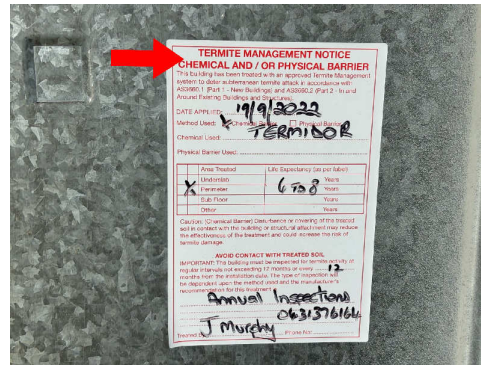 TERMITE MANAGEMENT NOTICE
CHEMICAL AND / OR PHYSICAL BARRIER
This building has been treated with an approved Termite Management
system to deter subterranean termite attack in accordance with
AS3660.1 (Part 1 - New Buildings) and AS3660.2 (Part 2 - In and
Around Existing Buildings and Structures)
DATE APPLIED: 19/9/2022
Method Used: Chemical Barrier Physical Barrier
Chemical Used: TERMIDOR
Physical Barrier Used:
Area Treated Life Expectancy (as per label)
Underslab Years
X Perimeter 6 TO 8 Years
Sub Floor Years
Other Years
Caution: (Chemical Barrier) Disturbance or covering of the treated
soil in contact with the building or structural attachment may reduce
the effectiveness of the treatment and could increase the risk of
termite damage.
AVOID CONTACT WITH TREATED SOIL
IMPORTANT: This building must be inspected for termite activity at
regular intervals not exceeding 12 months or every 12
months from the installation date. The type of inspection will
be dependent upon the method used and the manufacturer's
recommendation for this treatment
Annual Inspections
J Murphy
Treated Phone No: